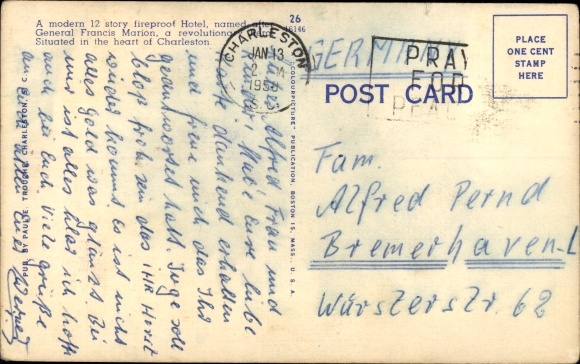 A modern 12 story fireproof Hotel, named after
General Francis Marion, a revolutionary
Situated in the heart of Charleston.
26
36146
CHARLESTON
JAN 13
2
195
S.C.
GERMANY
PRAY
FOR
PEA
POST CARD
PLACE
ONE CENT
STAMP
HERE
"COLOURPICTURE" PUBLICATION, BOSTON 15, MASS., U.S.A.
PUB BY PAULINE THOUROT, CHARLESTON,
Lieber Alfred, Frau und
Kinder! Habe Eure liebe
Karte dankend erhalten
und freue mich das Ihr
geantwortet habt. Junge soll
bloß froh sein das IHR Horst
wieder kommt. Es ist nicht
alles Gold was glänzt. Bei
mir ist alles klar ich hoffe
auch bei Euch. Viele Grüße
an Euch allen Euer
Fam.
Alfred Pernd
Bremerhaven-L
Wurster Str. 62